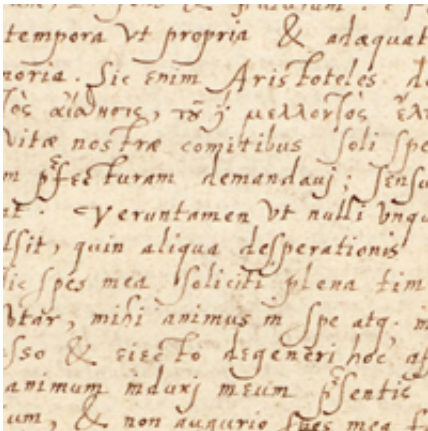 tempora vt propria & adæquat
moria. Sic enim Aristoteles d
αἴσθησις, τοῦ μελλοντος ἐλπ
vitæ nostræ comitibus soli spe
m p̃fecturam demandauj; sensu
at. Veruntamen vt nulli vnqu
lsit, quin aliqua desperationis
sic spes mea soliciti plena tim
vtar, mihi animus in spe atq. m
sso & eiecto degeneri hoc aff
animum induxj meum p̃sentis
um, & non augurio spes mea f